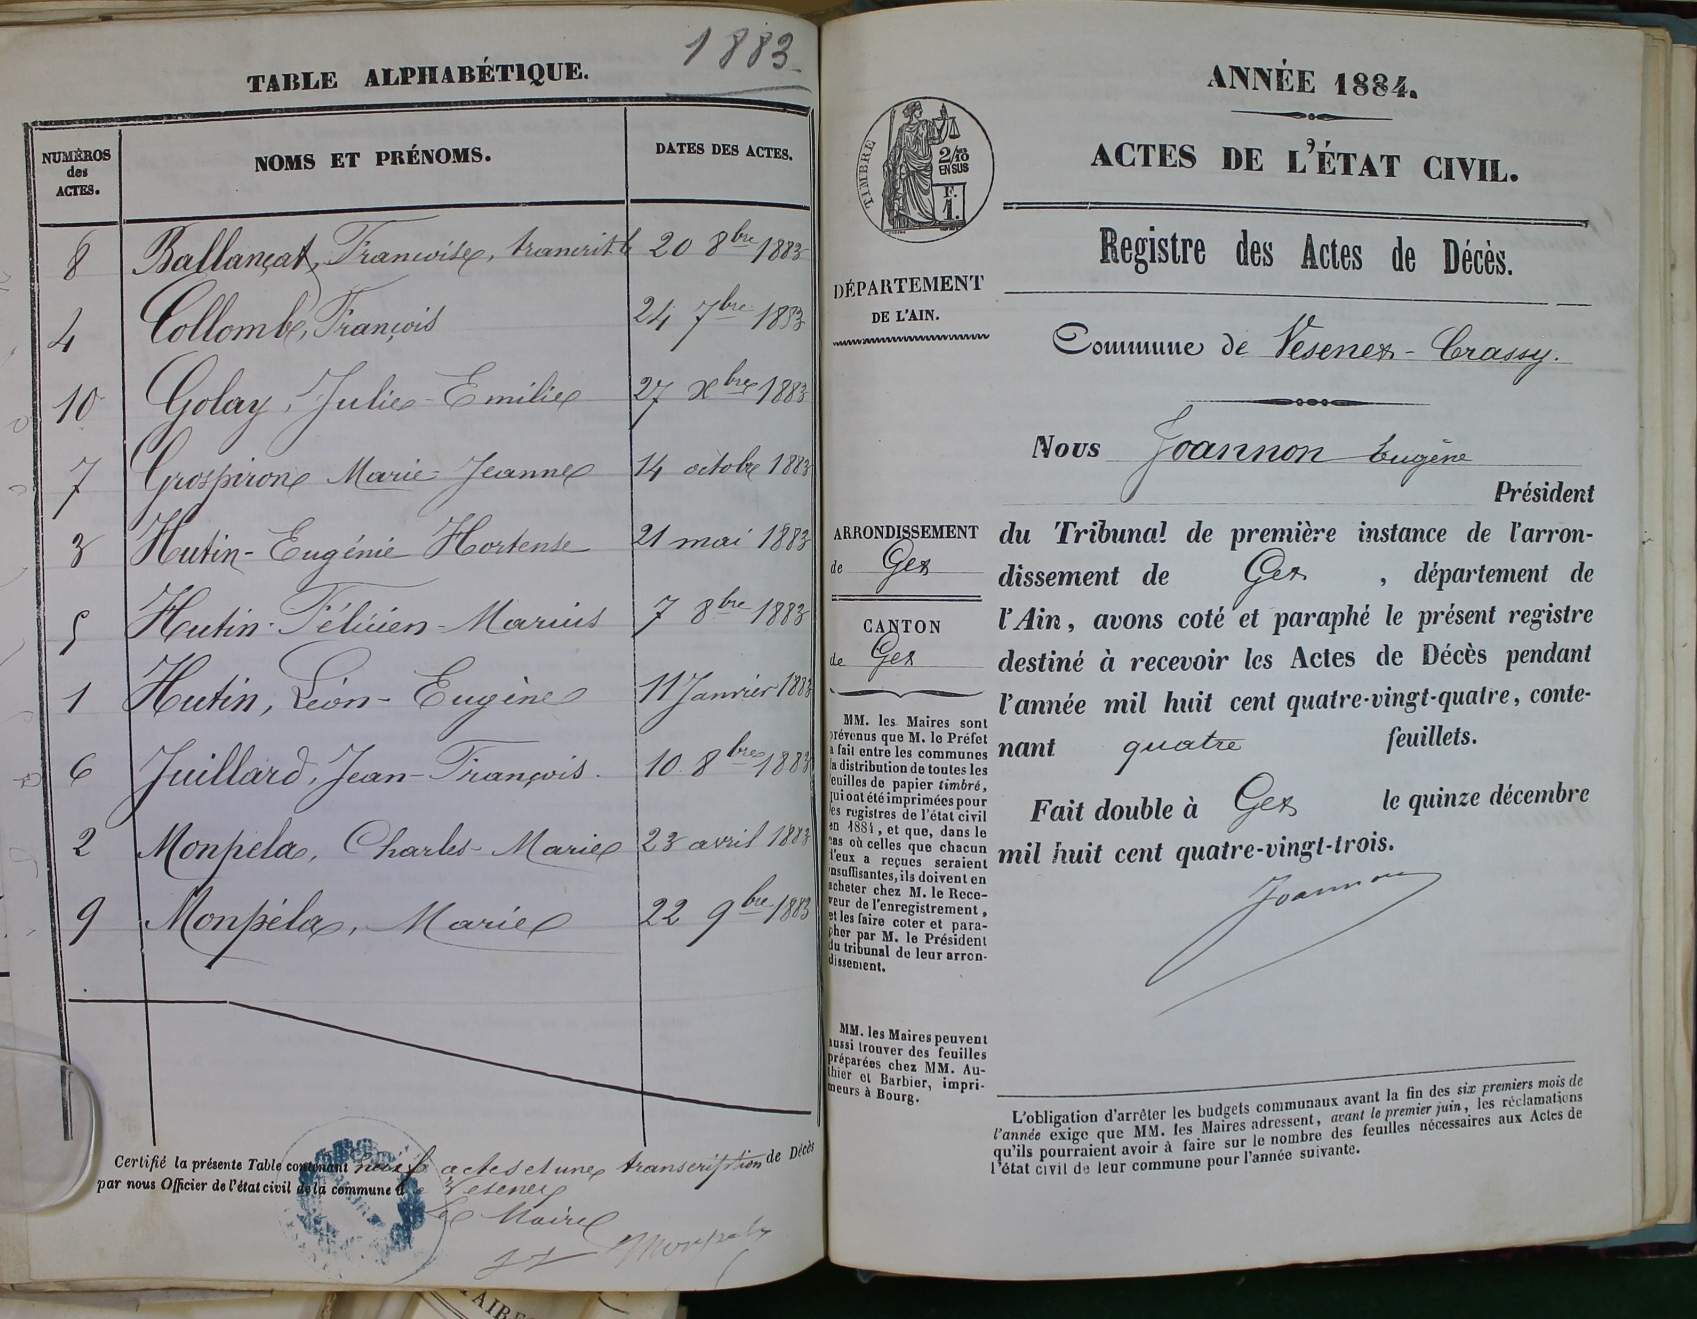 1883
TABLE ALPHABÉTIQUE.
NUMÉROS des ACTES. NOMS ET PRÉNOMS. DATES DES ACTES.
8 Ballançat, Françoise, trancritte 20 8bre 1883
4 Collomb, François 24 7bre 1883
10 Golay, Julie-Emilie 27 Xbre 1883
7 Grospiron Marie-Jeanne 14 octobre 1883
3 Hutin-Eugénie Hortense 21 mai 1883
5 Hutin-Félicien-Marius 7 8bre 1883
1 Hutin, Léon-Eugène 11 Janvier 1883
6 Juillard, Jean-François. 10 8bre 1883
2 Monpela, Charles-Marie 23 avril 1883
9 Monpéla, Marie 22 9bre 1883
Certifié la présente Table contenant neuf actes et une transcription de Décès
par nous Officier de l'état civil de la commune de Vesenex
Le Maire
Monpela
ANNÉE 1884.
ACTES DE L'ÉTAT CIVIL.
TIMBRE
2/10 EN SUS
F. 1.
Registre des Actes de Décès.
DÉPARTEMENT
DE L'AIN.
Commune de Vesenex-Crassy.
Nous Joannon Eugène
Président
du Tribunal de première instance de l'arron-
dissement de Gex, département de
l'Ain, avons coté et paraphé le présent registre
destiné à recevoir les Actes de Décès pendant
l'année mil huit cent quatre-vingt-quatre, conte-
nant quatre feuillets.
Fait double à Gex le quinze décembre
mil huit cent quatre-vingt-trois.
Joannon
ARRONDISSEMENT
de Gex
CANTON
de Gex
MM. les Maires sont
prévenus que M. le Préfet
a fait entre les communes
la distribution de toutes les
feuilles de papier timbré,
qui ont été imprimées pour
les registres de l'état civil
en 1884, et que, dans le
cas où celles que chacun
d'eux a reçues seraient
insuffisantes, ils doivent en
acheter chez M. le Rece-
veur de l'enregistrement,
et les faire coter et para-
pher par M. le Président
du tribunal de leur arron-
dissement.
MM. les Maires peuvent
aussi trouver des feuilles
préparées chez MM. Au-
thier et Barbier, impri-
meurs à Bourg.
L'obligation d'arrêter les budgets communaux avant la fin des six premiers mois de
l'année exige que MM. les Maires adressent, avant le premier juin, les réclamations
qu'ils pourraient avoir à faire sur le nombre des feuilles nécessaires aux Actes de
l'état civil de leur commune pour l'année suivante.